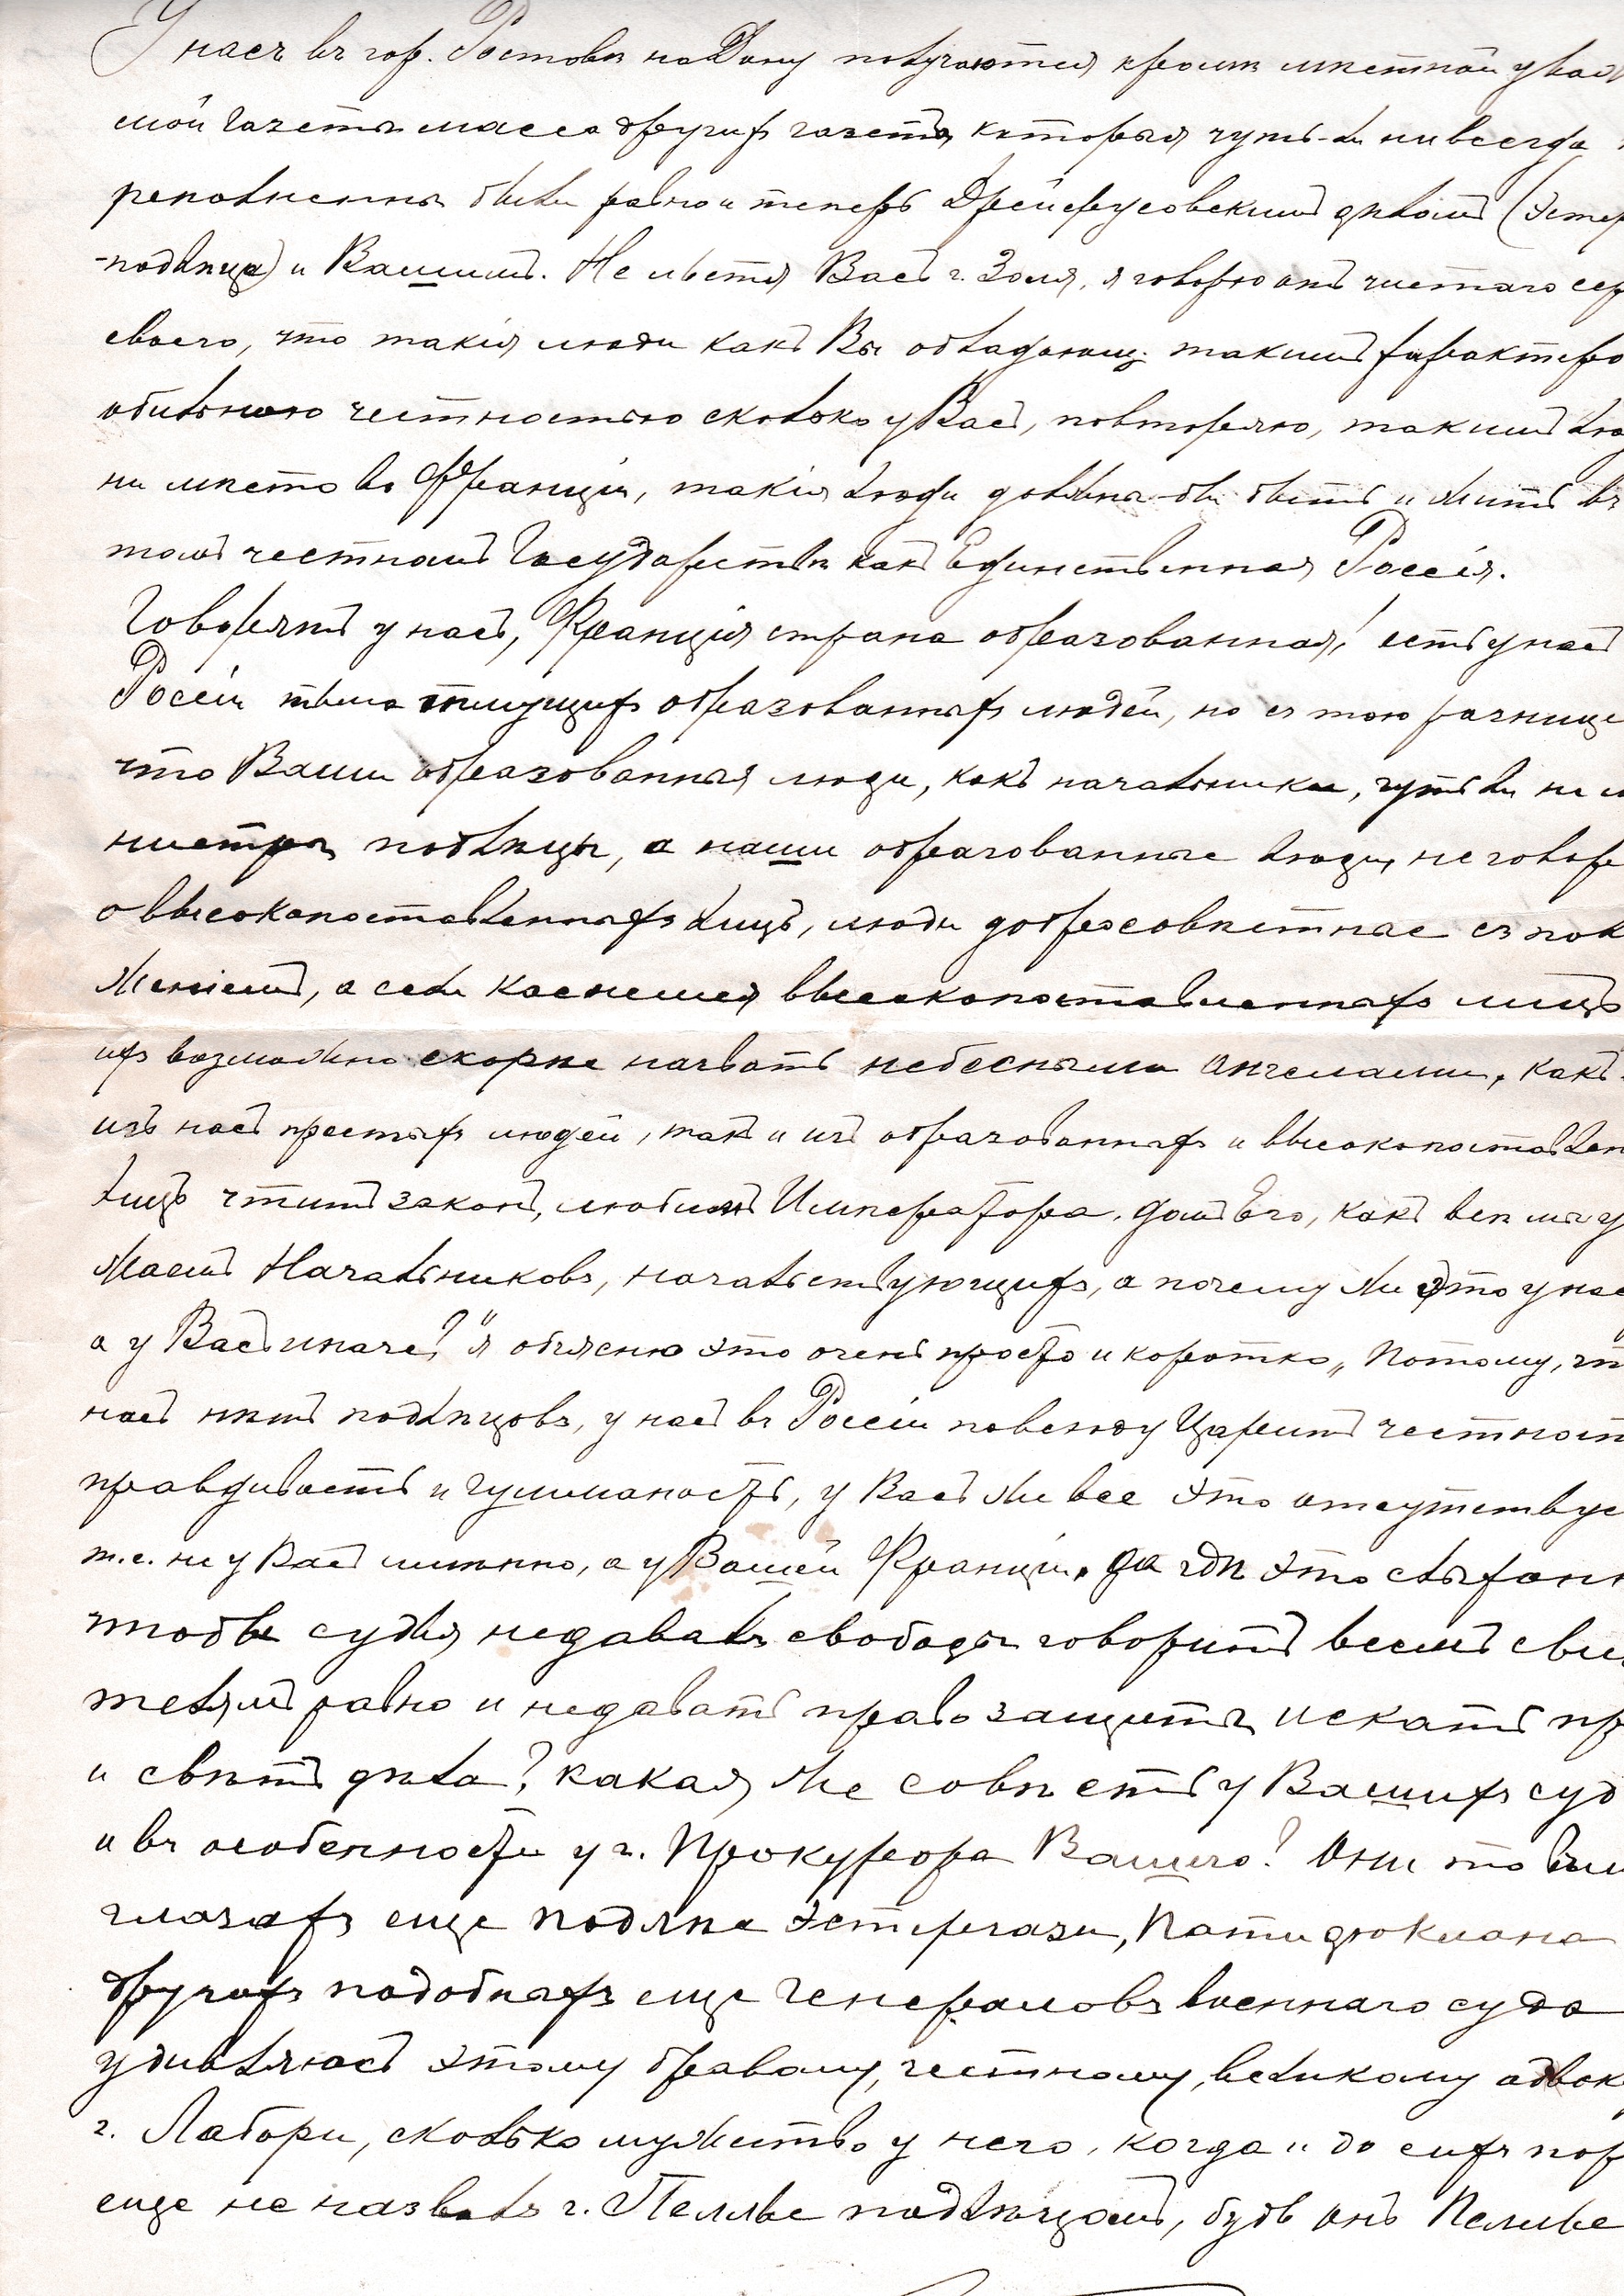 У насъ въ гор. Ростовѣ на Дону получаются кромѣ мѣстной уваж
мой газеты масса другихъ газетъ которыя чуть-ли не всегда
реполненны были равно и теперь Дрейфусовскимъ дѣломъ (Эстер
-подлѣца) и Вашимъ. Не льстя Васъ г. Золя, я говорю отъ чистаго сер
своего, что такія люди какъ Вы обладающ. такимъ характеро
обильною честностью сколько у Васъ, повторяю, такимъ лю
не мѣсто во Франціи, такія люди должны-бы быть и жить въ
томъ честномъ Государствѣ какъ Единственная Россія.
Говорятъ у насъ, Франція страна образованная! есть у насъ
Россіи тьма тмущихъ образованныхъ людей, но съ тою разнице
что Ваши образованныя люди, какъ начальники, чуть ли не м
нистры подлѣцы, а наши образованные люди, не говоря
о высокопоставленныхъ лицъ, люди добросовѣстные съ пол
женіемъ, а если коснемся высокопоставленныхъ лицъ
ихъ возможно скорѣе назвать небесными ангелами, какъ
изъ насъ простыхъ людей, такъ и изъ образованныхъ и высокопоставлен
лицъ чтимъ законъ, любимъ Императора, домъ Его, какъ всѣ мы у
жаемъ Начальниковъ, начальствующихъ, а почему же это у нас
а у Васъ иначе?" я объясню это очень просто и коротко „Потому, чт
насъ нѣтъ подлѣцовъ, у насъ въ Россіи повсюду Царитъ честност
правдивость и гумманость, у Васъ же все это отсутствуе
т.е. не у Васъ именно, а у Вашей Франціи. Да гдѣ это слыханн
чтобы судья недавалъ свободы говорить всемъ сви
телямъ равно и недавать право защиты искать пр
и свѣтъ дѣла? какая же совѣсть у Вашихъ суд
и въ особенности у г. Прокурора Вашего? Они то
глазахъ еще подлѣе Эстергази, Пати дюклана
другихъ подобныхъ еще генераловъ военнаго суда
удивляюсь этому бравому, честному, великому адвок
г. Лабори, сколько мужество у него, когда и до сихъ пор
еще не назвалъ г. Пеллье подлѣцомъ, будь онъ Пелье